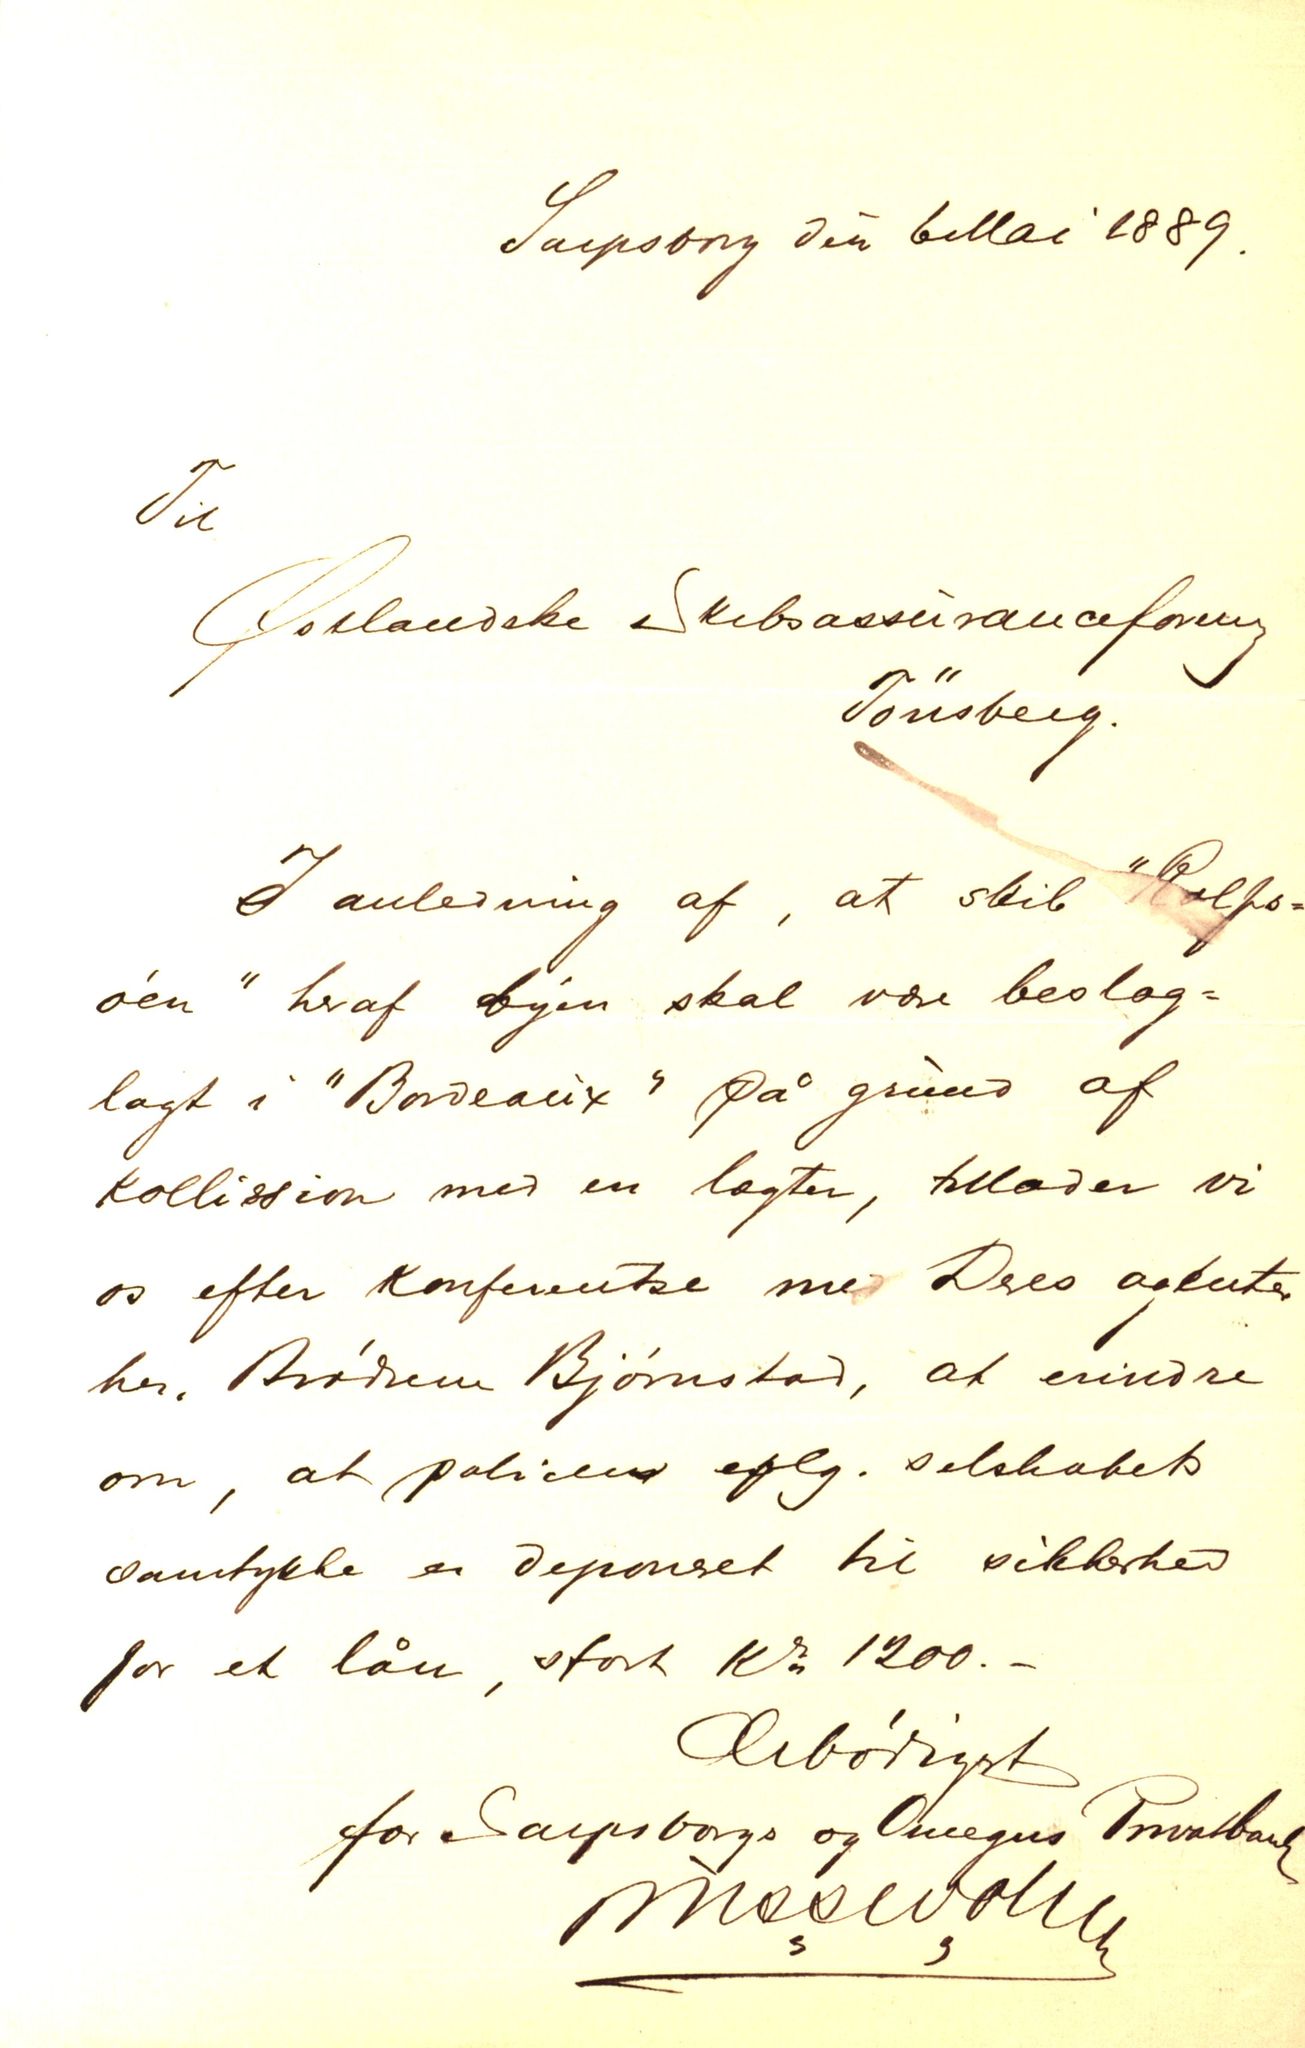 Sarpsborg den 6 Mai 1889.
Til
Østlandske Skibsassuranceforening
Tönsberg.
I anledning af, at skib "Rolfs=
øen" heraf byen skal være beslag=
lagt i "Bordeaux" på grund af
kollission med en lægter, tillader vi
os efter konferentse med Deres agenter
her, Brødrene Bjørnstad, at erindre
om, at policen eflg. selskabets
samtykke er deponeret til sikkerhed
for et lån, stort Kr 1200.-
Ærbødigst
for Sarpsborgs og Omegns Privatbank